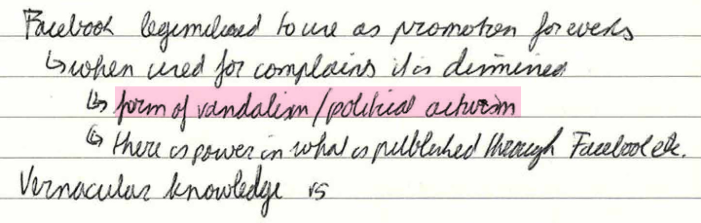 Facebook legimilised to use as promotion for events
↳ when used for complains it is dismissed
↳ form of vandalism/political activism
↳ there is power in what is published through Facebook etc.
Vernacular knowledge vs